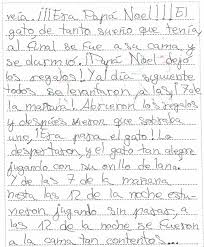 veía. ¡¡¡Era Papá Noel!!! El
gato de tanto sueño que tenía,
al final se fue a su cama y
se durmió. Papá Noel dejó
los regalos! Y al día siguiente
todos se levantaron a las ¡7 de
la mañana! Abrieron los regalos
y después vieron que sobraba
uno, ¡Era para el gato! Lo
despertaron y el gato tan alegre
jugando con su ovillo de lana.
Y de las 7 de la mañana
hasta las 12 de la noche estu-
vieron jugando sin parar, a
las 12 de la noche se fueron
a la cama tan contentos...